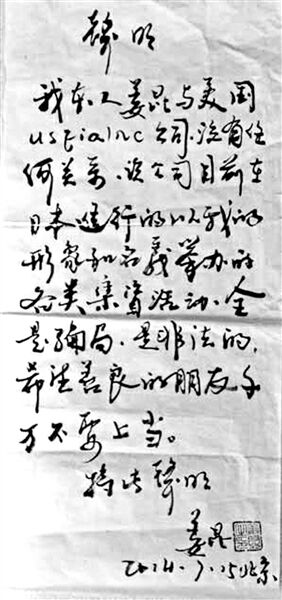 聲明
我本人姜昆与美国
usfia inc 公司，没有任
何关系，该公司目前在
日本进行的以我的
形象和名义举办的
各类集资活动，全
是骗局，是非法的，
希望善良的朋友千
万不要上当。
特此聲明
姜昆
2014.7.15北京